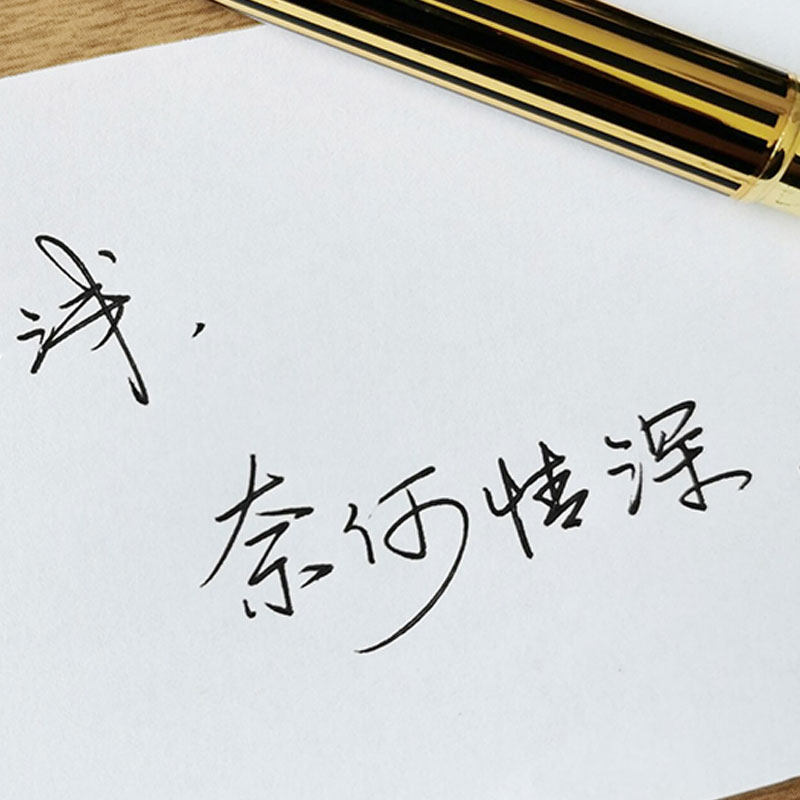 浅,
奈何情深